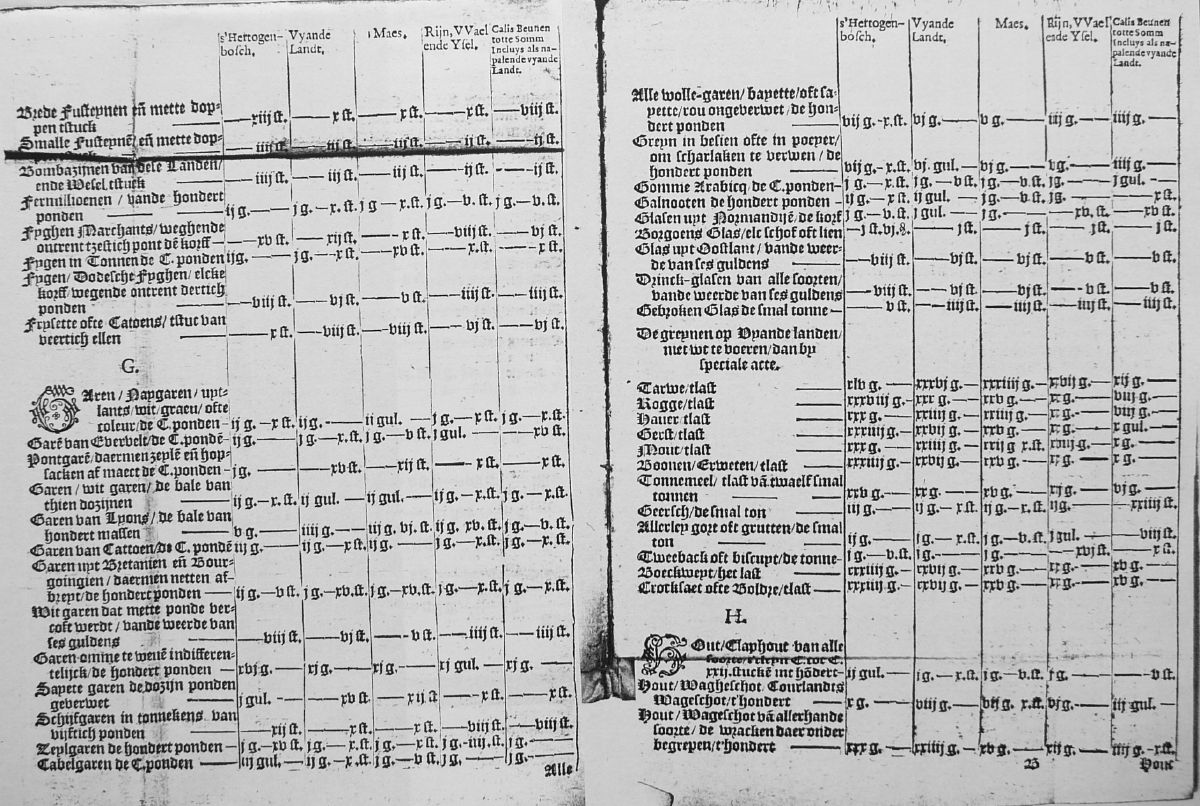 s'Hertogen- Vyande Maes. Rijn, VVael Calis Beunen
bosch. Landt. ende Ysel. totte Somm
Incluys als na-
palende vyande
Landt.
Brede Fusteynen en̄ mette dop-
pen tstuck —xiij st. —x st. —x st. —x st. —viij st.
Smalle Fusteynē en̄ mette dop-
—iiij st. —iij st. —ij st. —ij st. —ij st.
Bombazijnen van dese Landen/
ende Wesel, tstuck —iiij st. —iij st. —ij st. —ij st. —ij st.
Fermillioenen / vande hondert
ponden ij g.— j g.—x. st. j g—x. st. j g.—v. st. j g.—v. st.
Fyghen Marchants/weghende
ontrent tzestich pont dē korff —xv st. —xij st. —x st. —viij st. —vj st.
Fygen in Tonnen de C. ponden ij g.— j g.—x st. —xv st. —x. st. —x st.
Fygen/ Dodesche Fyghen/ elcke
korff/ wegende ontrent dertich
ponden —viij st. —vj st. —v st. —iiij st. —iiij st.
Frysette ofte Catoens/ tstuc van
veertich ellen —x st. —viij st. —viij st. —vj st. —vj st.
G.
GAren/ Naygaren/ uyt-
lants/wit/graeu/ ofte
coleur/de C. ponden— ij g.—x st. ij g.— ii gul.— j g.—x st. j g.—x. st.
Garē van Elvervelt/de C. pondē ij g.— j g.—x. st. j g.—v st. j gul.— —xv st.
Pontgarē/daermen zeylē en̄ hop-
sacken af maect de C. ponden— j g.— —xv st. —xij st. —x st. —x st.
Garen/ wit garen/ de bale van
thien dozijnen ij g.—x. st. ij gul.— ij gul.— j g.—x. st. j g.—x st.
Garen van Lyons/de bale van
hondert massen v g.— iiij g.— iij g. vj. st. ij g. xv. st. ij g.—v. st.
Garen van Cattoen/de C. pondē iij g.— ij g.—x st. ij g.— j g.—x. st. j g.—x. st.
Garen uyt Bretanien en̄ Bour-
goingien/ daermen netten af-
breyt/de hondert ponden— ij g.—v st. j g.—xv. st. j g.—xv. st. j g.—x. st. j g.—x. st.
Wit garen dat mette ponde ver-
coft werdt/ vande weerde van
ses guldens —viij st. —vj st. —v st. —iiij st. —iiij st.
Garen omme te wevē indifferen-
telijck/de hondert ponden— xvj g.— xj g.— xj g.— xj gul.— xj g.—
Sayete garen de dozijn ponden
geverwet j gul.— —xv st. —xij st —x st. —x st.
Schijfgaren in tonnekens van
vijftich ponden —xij st. —x st. —x st. —viij st. —viij st.
Zeylgaren de hondert ponden— j g.—xv st. j g.—x. st. j g.—x. st. j g.—iiij st. j g.—
Cabelgaren de C. ponden— iij gul.— ij g.—x. st. j g.—v st. j g.— j g.—
Alle
s'Hertogen- Vyande Maes. Rijn, VVael Calis Beunen
bosch. Landt. ende Ysel. totte Somm
Incluys als na-
palende vyande
Landt.
Alle wolle-garen/ bayette/oft sa-
yette/rou ongeverwet/de hon-
dert ponden vij g.-x. st. vj g.— v g.— iiij g.— iiij g.—
Greyn in besien ofte in poeyer/
om scharlaken te verwen/ de
hondert ponden vij g.—x. st. vj. gul.— vj g.— v g.— iiij g.—
Gomme Arabicq/de C. ponden— j g.—x. st. j g.—v st. j g.—v. st. j g.— j gul.—
Galnooten de hondert ponden— ij g.—x st. ij gul.— j g.—x. st. j g.— —x st.
Glasen uyt Normandijē/de korf j g.—v. st. j gul.— j g.— —xv st. —xv st.
Borgoens Glas/elc schof oft lien —j st. vj. —j st. —j st. —j st. —j st.
Glas uyt Oostlant/ vande weer-
de van ses guldens —viij st. —vj st. —vj st. —v st. —v st.
Drinck-glasen van alle soorten/
vande weerde van ses guldens —viij st. —vj st. —vj st. —v st. —v st.
Gebroken Glas de smal tonne— —v st. —iiij st. —iiij st. —iiij st. —iiij st.
De greynen op Vyande landen/
niet wt te voeren/dan by
speciale acte.
Tarwe/tlast xlv g.— xxxvj g.— xxxiiij g.— xxvij g.— xij g.—
Rogge/tlast xxxviij g.— xxx g.— xxv g.— xx g.— viij g.—
Haver/tlast xxx g.— xxiiij g.— xxiiij g.— xx g.— viij g.—
Gerst/tlast xxxiij g.— xxvij g.— xxv g.— xx g.— x gul.—
Mout/tlast xxx g.— xxiiij g.— xxij g x. st. xviij g.— x g.—
Boonen/Erweten/tlast xxxiij g.— xxvij g.— xxv g.— xx g.— x g.—
Tonnemeel/ tlast vā twaelf smal
tonnen xxv g.— xx g.— xv g.— xj g.— vj g.—
Geersch/de smal ton iij g.— ij g.—x st. ij g.—x. st. ij g.— —xxiiij st.
Allerley gort oft grutten/de smal
ton ij g.— j g.—x st. j g.—v. st. j gul.— —viij st.
Tweeback oft biscuyt/de tonne- j g.—v. st. j g.— j g.— —xvj st. —x st.
Boeckweyt/het last xxxiij g.— xxvij g.— xxv g.— xx g.— xv g.—
Crocksaet ofte Boldre/tlast— xxxiij g.— xxvij g.— xxv g.— xx g.— xv g.—
H.
HOut/Claphout van alle
soorte/ C. tot C.
xxij. stucken int hōdert- ij gul.— j g.—x. st. j g.—v. st. j g.— —v st.
Hout/ Wagheschot Courlandts
Wageschot/t'hondert x g.— viij g.— vij g. x. st. vj g.— iij gul.—
Hout/ Wageschot vā allerhande
soorte/ de wracken daer onder
begrepen/t'hondert xxx g.— xxiiij g.— xv g.— xij g.— iiij g.-x. st.
B Hout